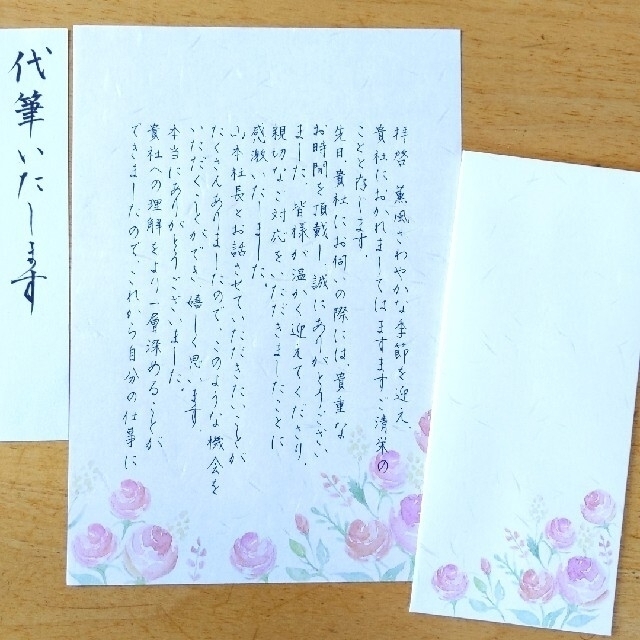 拝啓 薫風さわやかな季節を迎え
貴社におかれましてはますますご清栄の
ことと存じます。
先日貴社にお伺いの際には貴重な
お時間を頂戴し、誠にありがとうござい
ました。皆様が温かく迎えてくださり、
親切なご対応をいただきましたことに
感激いたしました。
山本社長とお話させていただきたいことが
たくさんありましたので、このような機会を
いただくことができ嬉しく思います。
本当にありがとうございました。
貴社への理解をより一層深めることが
できましたので、これから自分の仕事に
代筆いたします